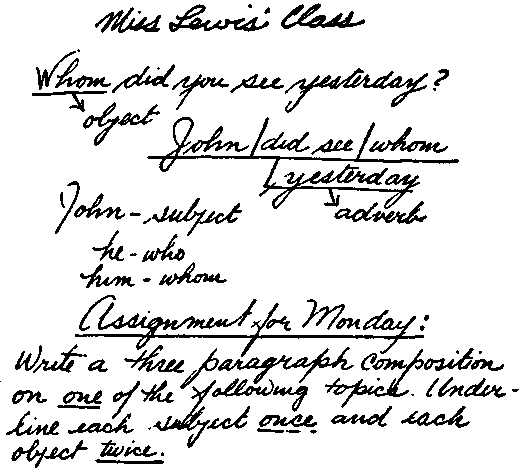 Miss Lewis' Class
Whom did you see yesterday?
object
John / did see / whom
/ yesterday
John - subject
adverb
he - who
him - whom
Assignment for Monday:
Write a three paragraph composition
on one of the following topics. Under-
line each subject once and each
object twice.